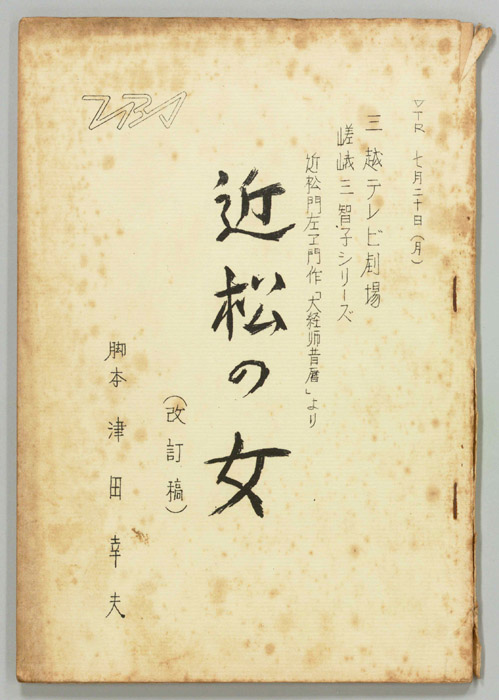 VTR 七月二十日(月)
三越テレビ劇場
嵯峨三智子シリーズ
近松門左ヱ門作「大経師昔暦」より
近松の女
(改訂稿)
脚本 津田幸夫